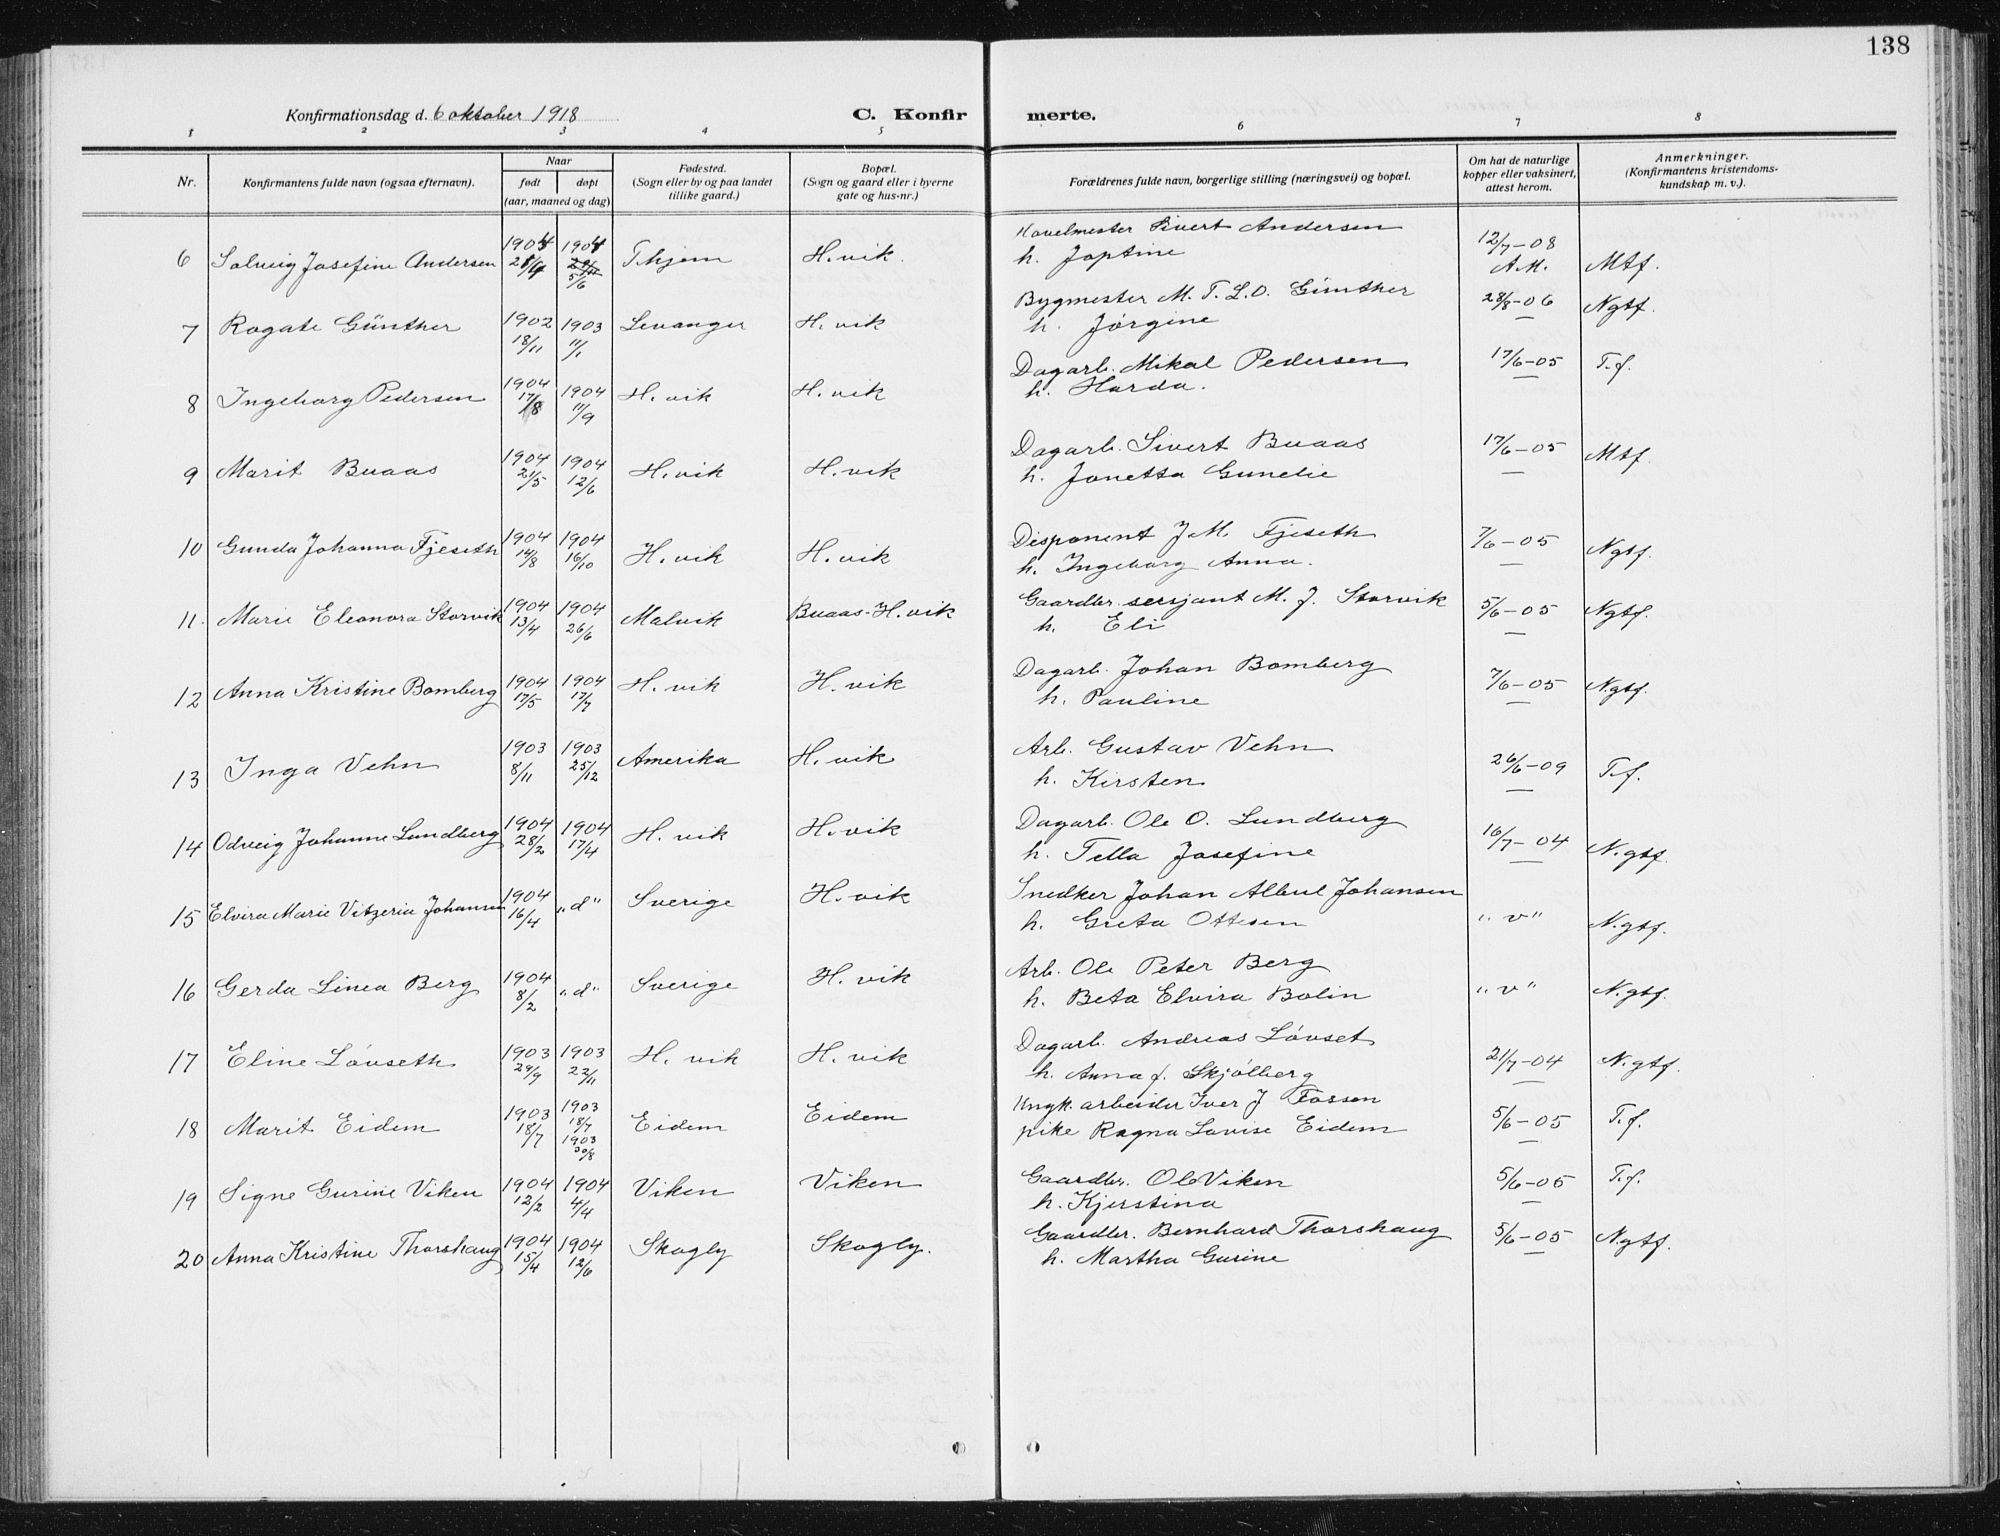 138
Konfirmationsdag d. 6 oktober 1918 C. Konfirmerte.
1 2 3 4 5 6 7 8
Nr. Konfirmantens fulde navn (ogsaa efternavn). Naar født døpt (aar, maaned og dag) Fødested. (Sogn eller by og paa landet tillike gaard.) Bopæl. (Sogn og gaard eller i byerne gate og hus-nr.) Forældrenes fulde navn, borgerlige stilling (næringsvei) og bopæl. Om hat de naturlige kopper eller vaksinert, attest herom. Anmerkninger. (Konfirmantens kristendomskundskap m. v.).
6 Solveig Josefine Andersen 1904 1904 5/6 Thjem H.vik. Sivert Andersen 12/7-08 A.M. Mtf.
h. Joptine
7 Rogate Günther 1902 18/11 1903 11/1 Levanger H.vik Bygmester M. T. L. O. Günther 28/8-06 Ngtf.
h. Jørgine
8 Ingeborg Pedersen 1904 17/8 1904 11/9 H.vik H.vik Dagarb. Mikal Pedersen 17/6-05 T.f.
h. Harda.
9 Marit Buaas 1904 21/5 1904 12/6 H.vik H.vik Dagarb. Sivert Buaas 17/6-05 Mtf.
h. Jonetta Gunelie
10 Gunda Johanna Fjeseth 1904 14/8 1904 16/10 H.vik H.vik Disponent J. M. Fjeseth 7/6-05 Ngtf.
h. Ingeborg Anna.
11. Marie Eleonora Storvik 1904 13/4 1904 26/6 Malvik Buaas-H.vik Gaardbr. sersjant M. J. Storvik 5/6-05 Ngtf.
h. Eli
12 Anna Kristine Bomberg 1904 17/5 1904 17/7 H.vik H.vik Dagarb. Johan Bomberg 7/6-05 N.gtf.
h. Pauline
13 Inga Vehn 1903 8/11 1903 25/12 Amerika H.vik Arb. Gustav Vehn 26/6-09 T.f.
h. Kirsten
14 Odveig Johanne Lundberg 1904 28/2 1904 17/4 H.vik H.vik Dagarb. Ole O. Lundberg 16/7-04 N.gtf.
h. Tella Josefine
15 Elvira Marie Vitzeria Johansen 1904 16/4 "d" Sverige H.vik Snedker Johan Albul Johansen "v" N.gtf.
h. Greta Ottesen
16 Gerda Linea Berg 1904 8/2 "d" Sverige H.vik Arb. Ole Peter Berg "v" N.gtf.
h. Beta Elvira Bolin
17 Eline Løvseth 1903 29/9 1903 22/11 H.vik H.vik Dagarb. Andreas Løvset 21/7-04 N.gtf.
h. Anna f. Skjølberg
18 Marit Eidem 1903 18/7 1903 18/7 1903 30/8 Eidem Eidem Ungk. arbeider Iver J Fossen 5/6-05 T.f.
pike Ragna Lovise Eidem
19 Signe Gurine Viken 1904 12/2 1904 4/4 Viken Viken Gaardbr. Ole Viken 5/6-05 T.f.
h. Kjerstina
20 Anna Kristine Thorshaug 1904 15/4 1904 12/6 Skogly Skogly. Gaardbr. Bernhard Thorshaug 5/6-05 N.gtf.
h. Martha Gurine